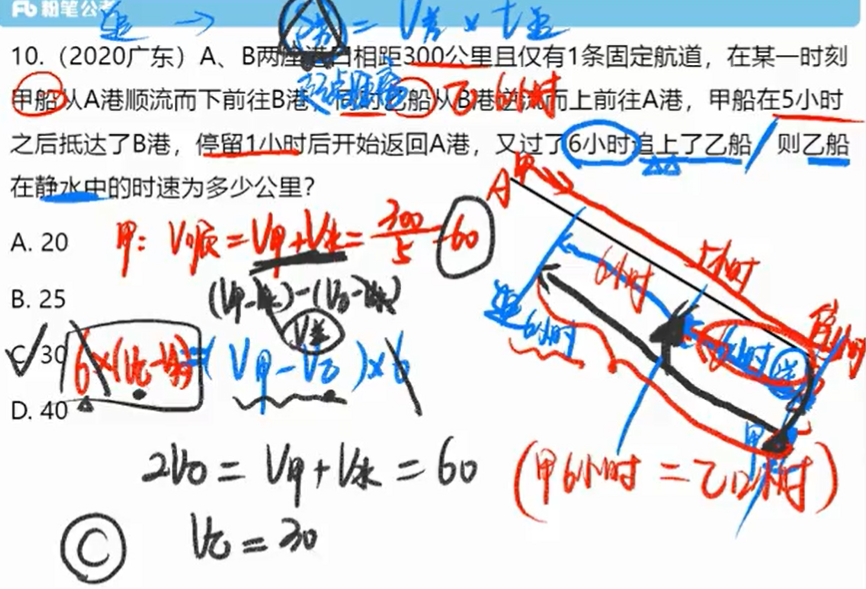 粉笔公考
追 → S差 = V差 × t追
10.（2020广东）A、B两座港口相距300公里且仅有1条固定航道，在某一时刻
甲船从A港顺流而下前往B港，同时乙船从B港逆流而上前往A港，甲船在5小时
之后抵达了B港，停留1小时后开始返回A港，又过了6小时追上了乙船，则乙船
在静水中的时速为多少公里？
乙6小时
A. 20
甲: V顺 = V甲+V水 = 300/5 = 60
B. 25
(V甲-V水)-(V乙-V水)
V差
C. 30
6×(V乙-V水) = (V甲-V乙)×6
D. 40
2V乙 = V甲+V水 = 60
V乙 = 30
C
A 甲
5小时
6小时
追 6小时
甲
(甲6小时 = 乙12小时)